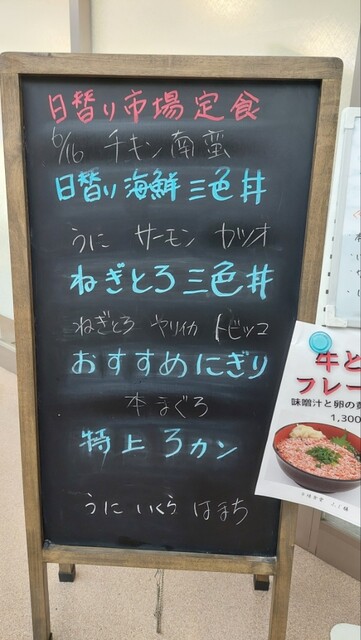 日替り市場定食
6/16 チキン南蛮
日替り海鮮三色丼
うに サーモン カツオ
ねぎとろ三色丼
ねぎとろ ヤリイカ トビッコ
おすすめにぎり
本まぐろ
特上3カン
うに いくら はまち
牛と
フレー
味噌汁と卵の
1,300